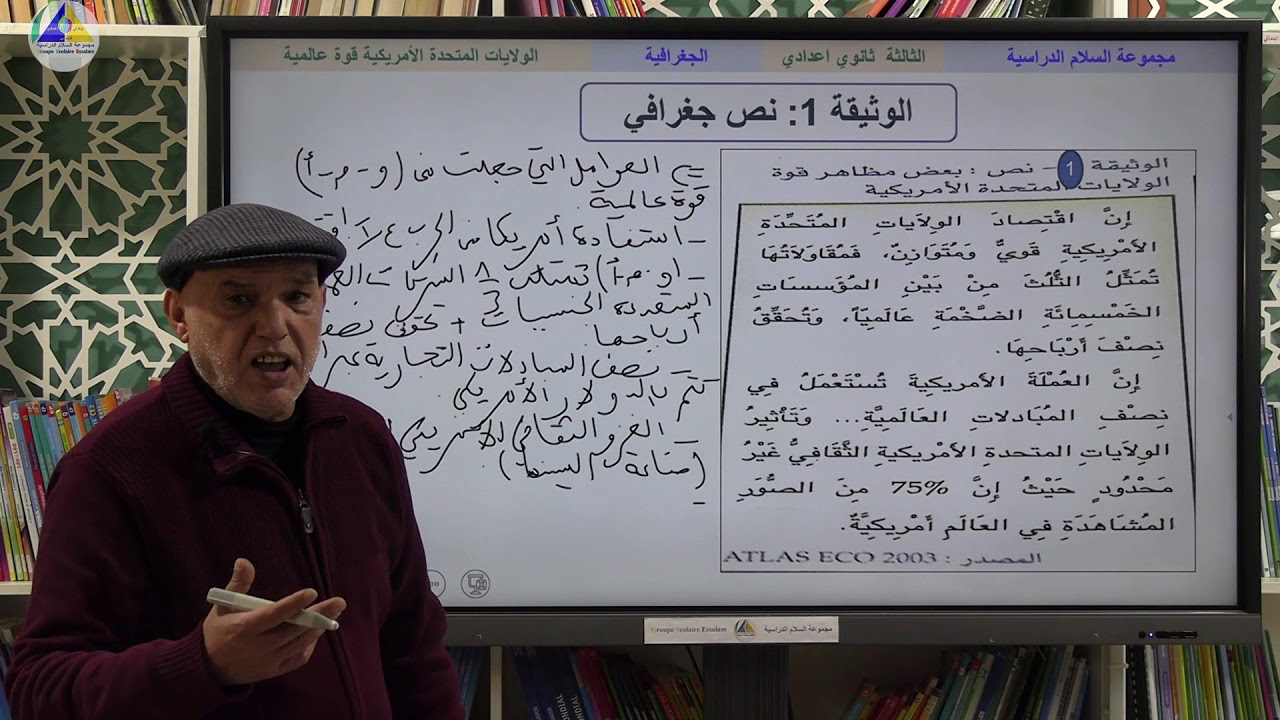 مجموعة السلام الدراسية
Groupe Scolaire Essalam
مجموعة السلام الدراسية
الثالثة ثانوي اعدادي
الجغرافية
الولايات المتحدة الأمريكية قوة عالمية
الوثيقة 1: نص جغرافي
الوثيقة 1 - نص : بعض مظاهر قوة
الولايات المتحدة الأمريكية
إنَّ اقْتِصادَ الوِلَاياتِ المُتَحِّدَةِ
الأمْرِيكِيةِ قَوِيٌّ وَمُتَوَازِنٌ، فَمُقَاوَلَاتُهَا
تُمَثِّلُ الثُّلُثَ مِنْ بَيْنِ المُؤَسسَاتِ
الخَمْسِمِائَةِ الضَّخْمَةِ عَالَمِيّاً، وَتُحَقِّقُ
نِصْفَ أرْبَاحِهَا.
إنَّ العُمْلَةَ الأمريكِيةَ تُسْتَعْمَلُ في
نِصْفِ المُبَادلاتِ العَالَمِيَّةِ... وَتَأْثِيرُ
الوِلَايَاتِ المتحدةِ الأمْريكيةِ الثَّقَافيُّ غَيْرُ
مَحْدُودٍ حَيْثُ إنَّ 75% مِنَ الصُّوَرِ
المُشَاهَدَةِ فِي العَالَمِ أمْرِيكِيَّةٌ.
المصدر : ATLAS ECO 2003
العوامل التي جعلت من (و-م-أ)
قوة عالمية
- استفادة أمريكا من الحرب ع
- (و م أ) تمتلك 1/3 الشركات
المتعددة الجنسيات + تحقق نصف
أرباحها.
- نصف المبادلات التجارية
تتم بالدولار الأمريكي
- الغزو الثقافي الأمريكي
(صناعة السينما)
-
Groupe Scolaire Essalam مجموعة السلام الدراسية